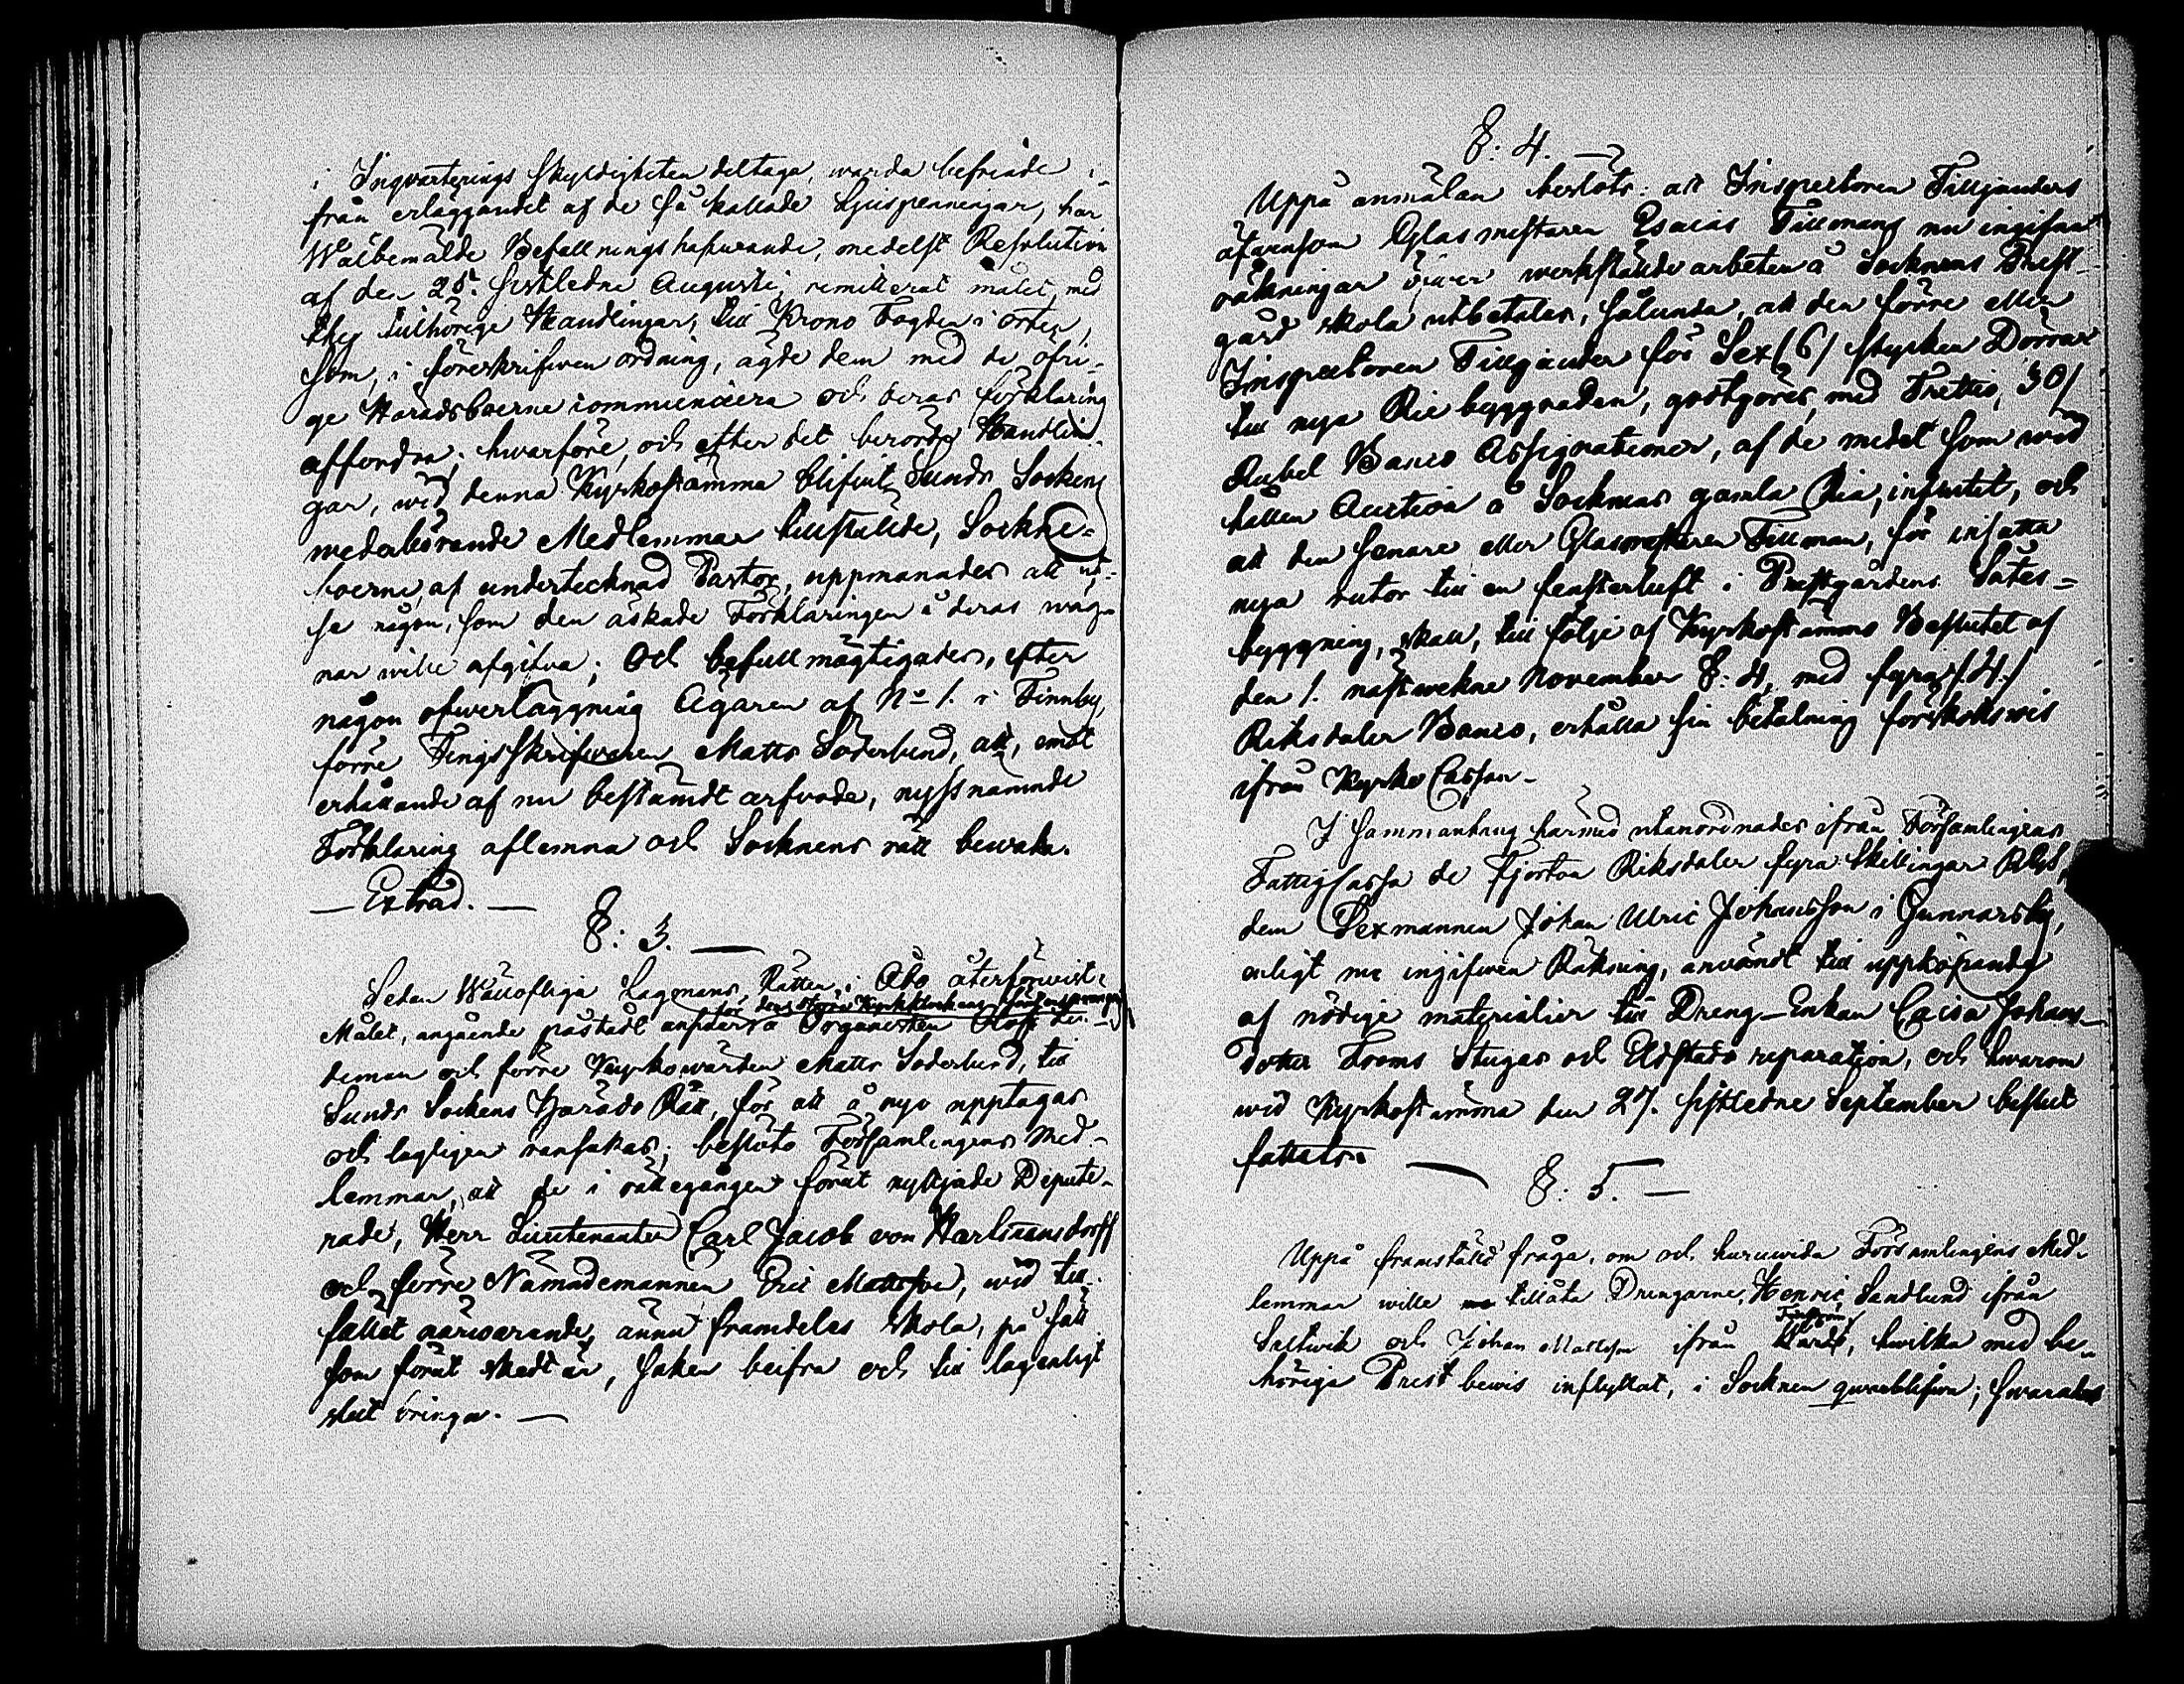 i Inqvarterings skyldigheten deltaga, warda befriade i-
från erläggandet af de så kallade Ljuspenningar, har
Wälbemälde Befallningshafwande, medelst Resolution
af den 25. sistledne Augusti, remitterat målet, med
thy tillhörige Handlingar, till Krono Fogden i orten,
som, i föreskrifwen ordning, ägde dem med de öfri-
ge Häradsboerne communicera och deras förklaring
affordra; hwarföre, och efter det berörde Handlin-
gar, wid denna Kyrkostämma blifwit Sunds Sockens
wederbörande Medlemmar tillstälde, Sockne-
boerne, af undertecknad Pastor, uppmanades att ut-
se någon, som den äskade Förklaringen å deras wäg-
nar wille afgifva; Och befullmägtigades, efter
någon öfwerläggning Ägaren af No 1. i Finnby,
förre Tingsskrifwaren Matts Söderlund, att, emot
erhållande af nu bestämdt arfvode, nyssnämnde
Förklaring aflemna och Socknens rätt bewaka.
— Extrad. —
§: 3. —
Sedan Wällofliga Lagmans Rätten i Åbo återförwist
för den större Kyrkklockans
Målet, angående påstådt answar å Organisten Olof Lin-
deman och förre Kyrkowärden Matts Söderlund, till
Sunds Sockens Härads Rätt, för att å nyo upptagas
och lagligen ransakas; beslöto Församlingens Med-
lemmar, att de i rättegången förut nyttjade Depute-
rade, Herr Lieutenanten Carl Jacob von Hartmansdorff
och förre Nämndemannen Eric Mattsson, wid till-
fället närwarande, ännu framdeles skola, på sätt
som förut skedt är, saken beifra och till lagenligt
slut bringa. —
§: 4. —
Uppå anmälan beslöts: att Inspectoren Tilljanders
äfwensom Glasmästaren Esaias Tillmans nu ingifna
räkningar öfwer werkstälde arbeten å Socknens Prest-
gård skola utbetalas, sålunda, att den förre eller
Inspectoren Tilljander för Sex (6) stycken Dörrar
till nya Rie byggnaden, godtgöres, med Trettio, 30/
Rubel Banco Assignationer, af de medel som wid
hållen Auction å Socknens gamla Ria, influtit, och
att den senare eller Glasmästaren Tillman, för insatta
nya rutor till en fensterluft i Prestgårdens Sätes-
byggning, skall, till följe af Kyrkostämmo Beslutet af
den 1. nästwekne November §: 4, med fyra /4./
Riksdaler Banco, erhålla sin betalning förskotswis
ifrån Kyrko Cassan.
I sammanhang härmed utanordnades ifrån Församlingens
Fattig Cassa de Fjorton Riksdaler fyra Skillingar Rgs,
dem Sexmannen Johan Ulric Johansson i Gunnarsby,
enligt nu ingifwen Räkning, användt till uppköpande
af nödige materialier till Dreng-Enkan Caisa Johans-
dotter Froms Stugas och Eldstads reparation, och hwarom
wid Kyrkostämma den 27. sistledne September beslut
fattats. —
§: 5. —
Uppå framstäld fråga, om och huruwida Församlingens Med-
lemmar wille tillåta Drengarne, Henric Sandlund ifrån
Saltwik och Johan Mattsson ifrån , hwilka med be-
höriga Prest bewis inflyttat, i Socknen qwarblifwa; swarades